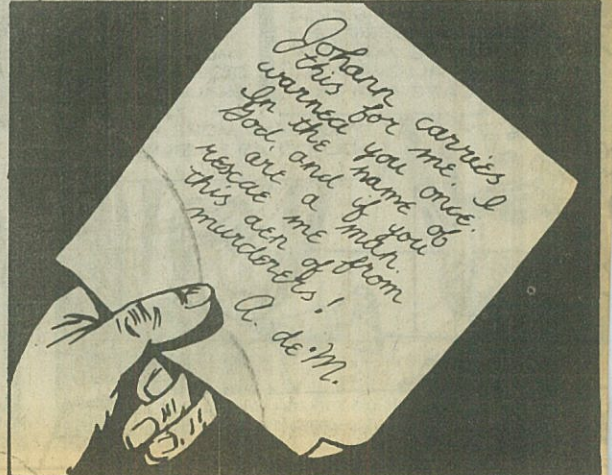 Johann carries
this for me. I
warned you once.
In the name of
God, and if you
are a man.
rescae me from
this den of
murderers!
A. de M.